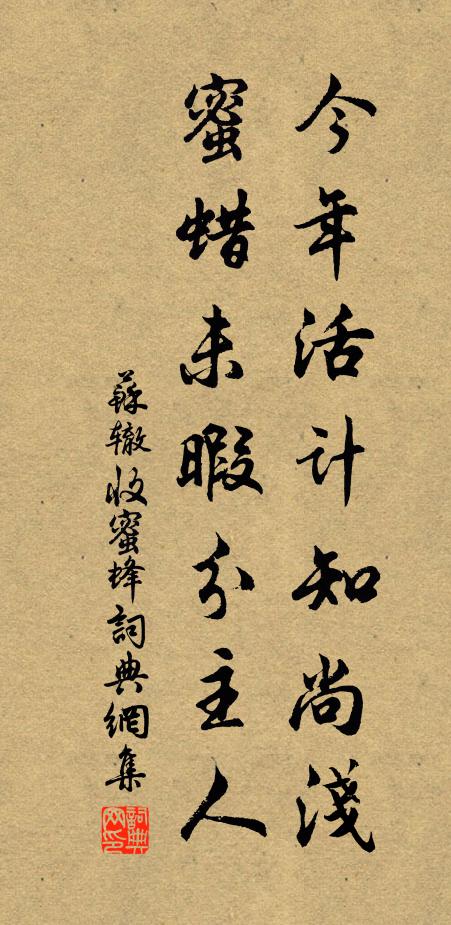 今年活计知尚淺
蜜蜡未暇分主人
蘇辙收蜜蜂詞典網集
詞典網印